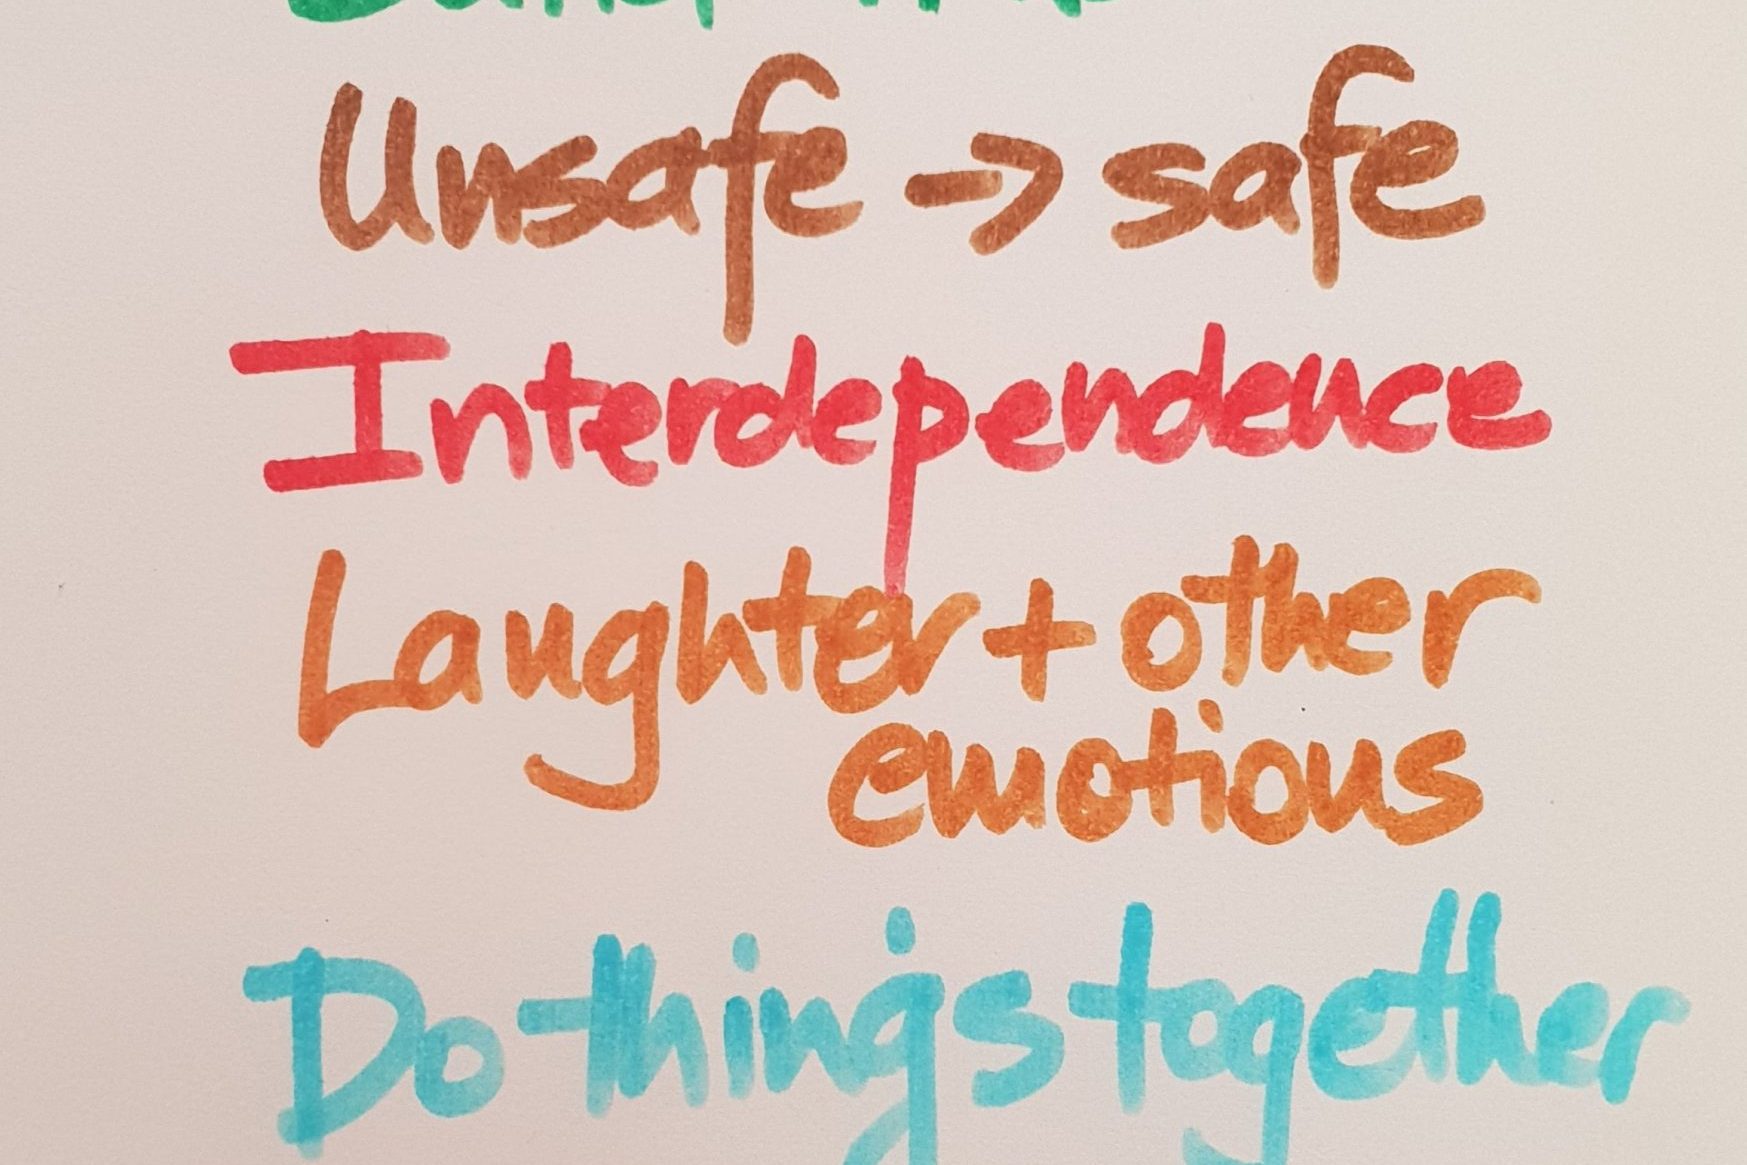 Unsafe -> safe
Interdependence
Laughter + other
emotions
Do things together